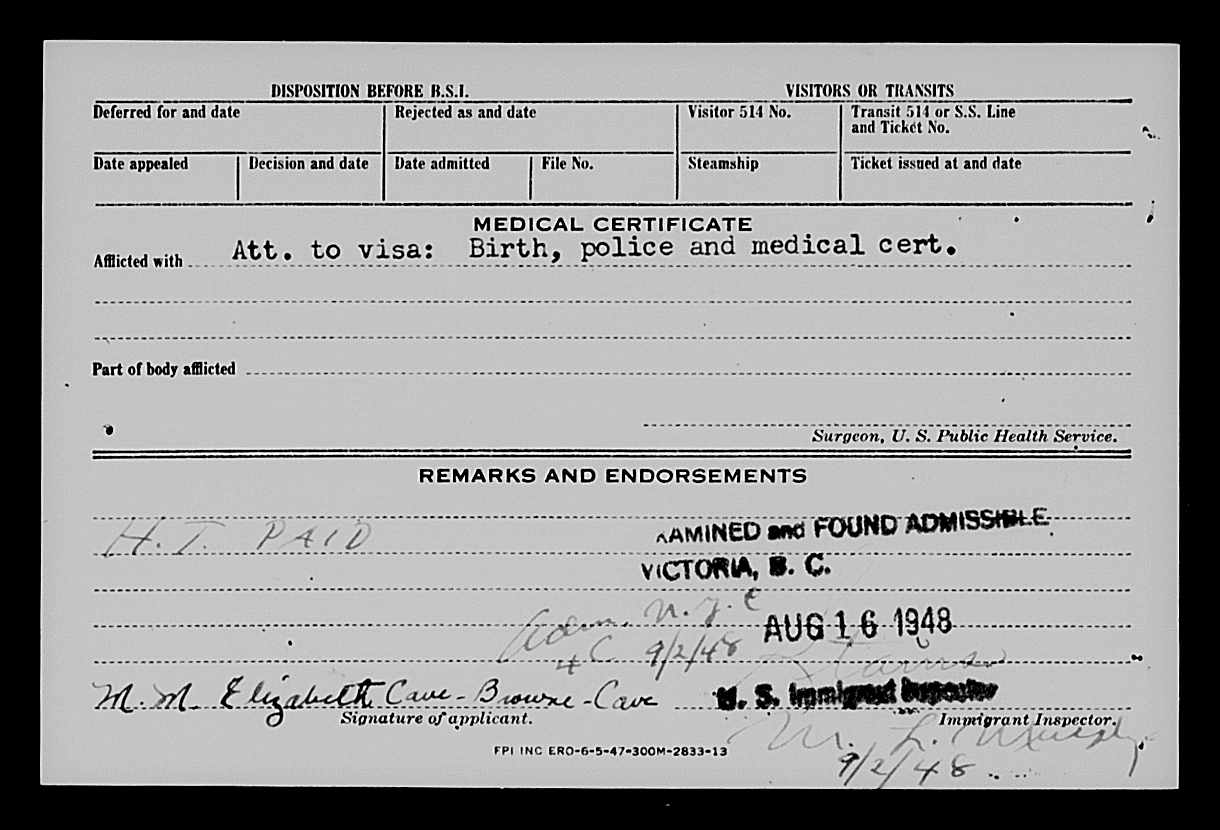 DISPOSITION BEFORE B.S.I. VISITORS OR TRANSITS
Deferred for and date Rejected as and date Visitor 514 No. Transit 514 or S.S. Line
and Ticket No.
Date appealed Decision and date Date admitted File No. Steamship Ticket issued at and date
MEDICAL CERTIFICATE
Afflicted with Att. to visa: Birth, police and medical cert.
Part of body afflicted
Surgeon, U. S. Public Health Service.
REMARKS AND ENDORSEMENTS
H. T. PAID
AMINED and FOUND ADMISSIBLE
VICTORIA, B. C.
Adm. N.Y.C
AUG 16 1948
4C 9/2/48
M. M. Elizabeth Cave-Browne-Cave U. S. Immigrant Inspector
Signature of applicant. Immigrant Inspector.
M. L.
FPI INC ERO-6-5-47-300M-2833-13
9/2/48